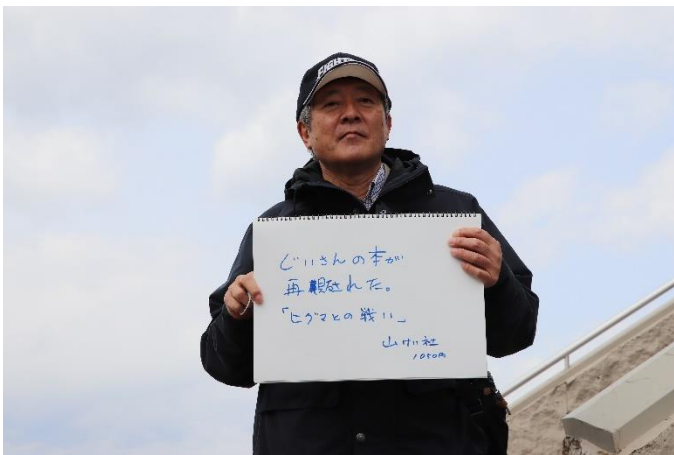 FIGHT
じいさんの本が
再販された。
「ヒグマとの戦い」
山けい社
1050円